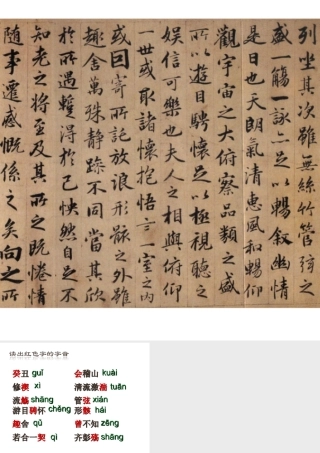 列坐其次雖無絲竹管弦之
盛一觴一詠亦足以暢敘幽情
是日也天朗氣清惠風和暢仰
觀宇宙之大俯察品類之盛
所以遊目騁懷足以極視聽之
娛信可樂也夫人之相與俯仰
一世或取諸懷抱悟言一室之內
或因寄所託放浪形骸之外雖
趣舍萬殊靜躁不同當其欣
於所遇蹔得於己怏然自足不
知老之將至及其所之既惓情
隨事遷感慨係之矣向之所
读出红色字的字音
癸丑 guǐ 会稽山 kuài
修禊 xì 清流激湍 tuān
流觞 shāng 管弦 xián
游目骋怀 chěng 形骸 hái
趣舍 qǔ 曾不知 zēng
若合一契 qì 齐彭殇 shāng